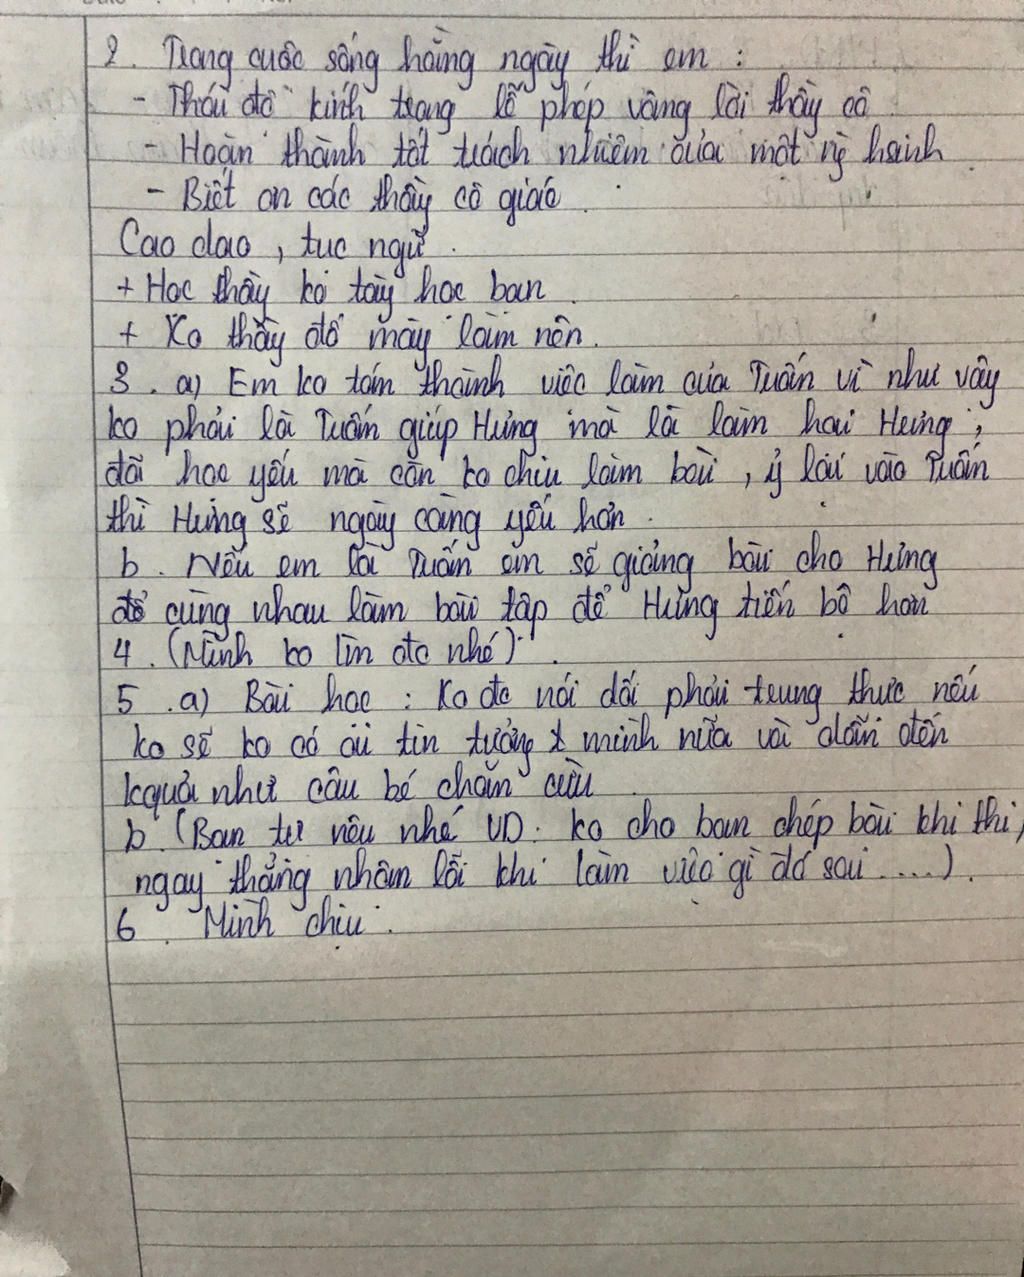 2. Trong cuộc sống hằng ngày thì em :
- Thái độ kính trọng lễ phép vâng lời thầy cô
- Hoàn thành tốt trách nhiệm của một ng hsinh
- Biết ơn các thầy cô giáo.
Cao dao, tục ngữ.
+ Học thầy ko tày học bạn.
+ Ko thầy đố mày làm nên.
3. a) Em ko tán thành việc làm của Tuấn vì như vậy
ko phải là Tuấn giúp Hưng mà là làm hại Hưng ;
đã học yếu mà còn ko chịu làm bài, ỷ lại vào Tuấn
thì Hưng sẽ ngày càng yếu hơn.
b. Nếu em là Tuấn em sẽ giảng bài cho Hưng
để cùng nhau làm bài tập để Hưng tiến bộ hơn
4. (Mình ko lm đc nhé).
5. a) Bài học : Ko đc nói dối phải trung thực nếu
ko sẽ ko có ai tin tưởng mình nữa và dẫn đến
kquả như cậu bé chăn cừu.
b. (Bạn tự nêu nhé VD: ko cho bạn chép bài khi thi,
ngay thẳng nhận lỗi khi làm việc gì đó sai .....).
6. Mình chịu.